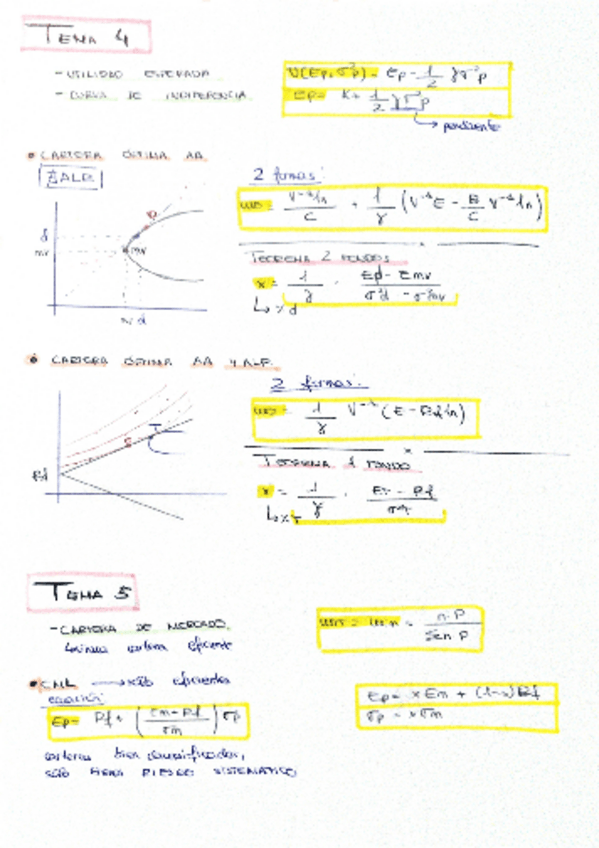 TEMA 4
- UTILIDAD ESPERADA
- CURVA DE INDIFERENCIA
U(Ep, σ²p) = Ep - 1/2 γσ²p
Ep = K + 1/2 γσ²p
↳ pendiente
• CARTERA ÓPTIMA AA
∄ ALR
2 formas:
= V⁻¹1n / C + 1/γ (V⁻¹E - B/C V⁻¹1n)
d
mv
mv
mv d
TEOREMA 2 FONDOS
x = 1/γ · Ed - Emv / σ²d - σ²mv
↳ xd
• CARTERA ÓPTIMA AA Y ALR
2 formas:
= 1/γ V⁻¹ (E - Rf1n)
T
Rf
TEOREMA 1 FONDO
x = 1/γ · ET - Rf / σ²T
↳ xT
TEMA 5
- CARTERA DE MERCADO
cartera eficiente
• CML → sólo eficientes
ecuación:
Ep = Rf + (Em - Rf / σm) σp
Ep = xEm + (1-x)Rf
σp = xσm
carteras bien diversificadas,
sólo tienen RIESGO SISTEMÁTICO